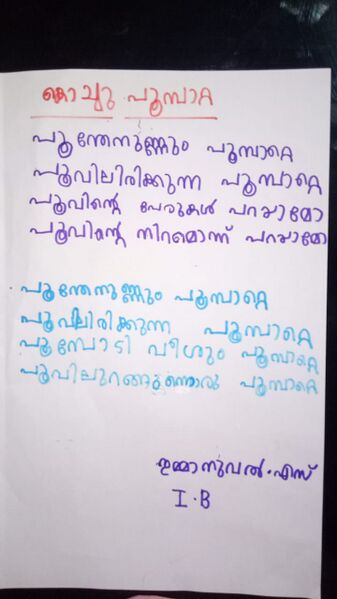 കൊച്ചു പൂമ്പാറ്റ
പൂന്തേനുണ്ണും പൂമ്പാറ്റെ
പൂവിലിരിക്കുന്ന പൂമ്പാറ്റെ
പൂവിന്റെ പേരുകൾ പറയാമോ
പൂവിന്റെ നിറമൊന്ന് പറയാമോ
പൂന്തേനുണ്ണും പൂമ്പാറ്റെ
പൂവിലിരിക്കുന്ന പൂമ്പാറ്റെ
പൂമ്പോടി വീശും പൂമ്പാറ്റെ
പൂവിലുറങ്ങുന്നൊരു പൂമ്പാറ്റെ
ഇമ്മാനുവൽ.എസ്
I.B